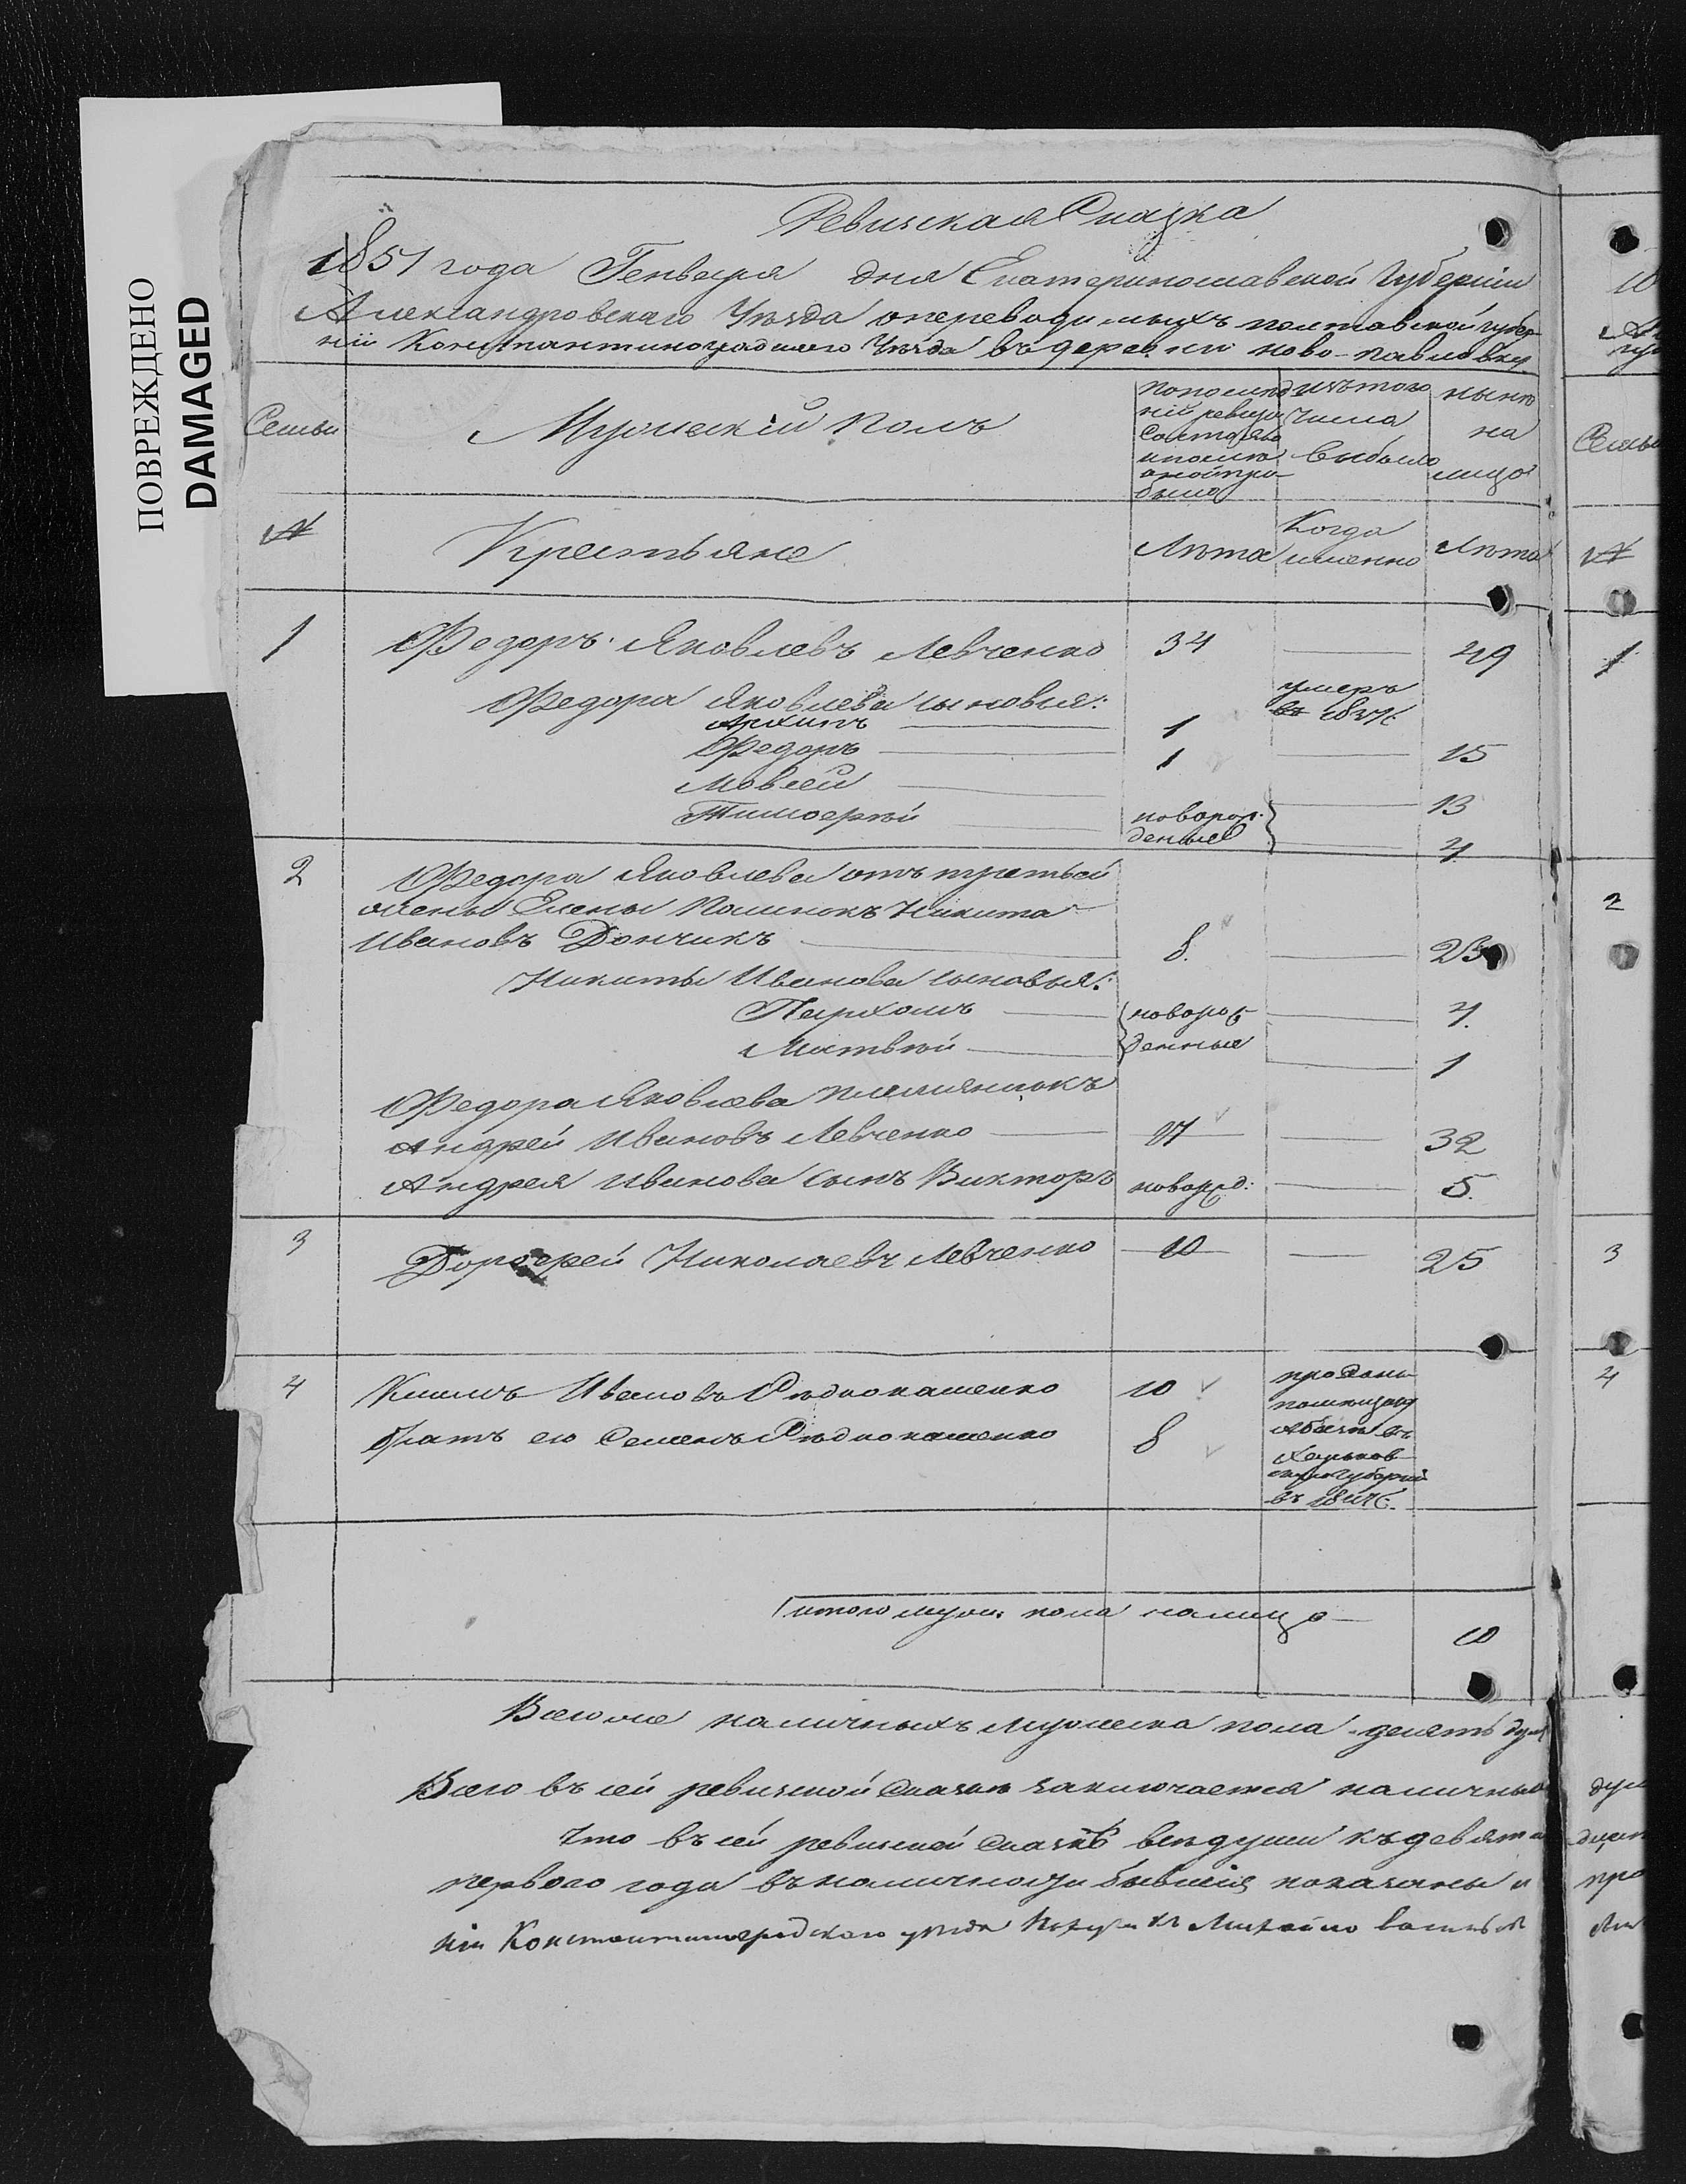 ПОВРЕЖДЕНО
DAMAGED
Ревизская Сказка
1851 года Генваря дня Екатеринославской Губерніи
Александровскаго Уѣзда о переводимыхъ полтавской губер-
ніи Константиноградскаго Уѣзда въ деревни ново-павловку
Семьи
Мужеский полъ
по послѣд-
ній ревизіи
состояло
и послѣ
оной при-
было
изъ того
числа
выбыло
нынѣ
на
лицо
Семьи
№
Крестьяне
Лѣта
Когда
именно
Лѣта
№
1 Федоръ Яковлевъ Левченко 34 49 1
Федора Яковлева сыновья:
умеръ
въ 1837г.
Архипъ 1
Федоръ 1 15
Мовсей 13
Тимоѳей новорож-
денные 4
2 Федора Яковлева отъ третьей
жены Елены Пасинокъ Никита
Ивановъ Дончикъ 8. 23
2
Никиты Иванова сыновья:
Пархомъ новорож- 4.
Матвѣй денные 1
Федора Яковлева племянникъ
Андрей Ивановъ Левченко 17 32
Андрея Иванова сынъ Викторъ новорожд: 5.
3 Дорофей Николаевъ Левченко 10 25 3
4 Климъ Ивановъ Рѣднокашенко 10 4
братъ его Семенъ Рѣднокашенко 8
проданы
помѣщику
въ
Харьков-
скую губерній
въ
итого муж: пола налицо
10
Всего же наличныхъ мужеска пола десять душъ
Всего въ сей ревизской сказкѣ заключается наличныхъ
Что въ сей ревизской сказкѣ всѣ души къ девята
перваго года въ наличности бывшія показаны и
ніи Константиноградскаго уѣзда Михайло васильев